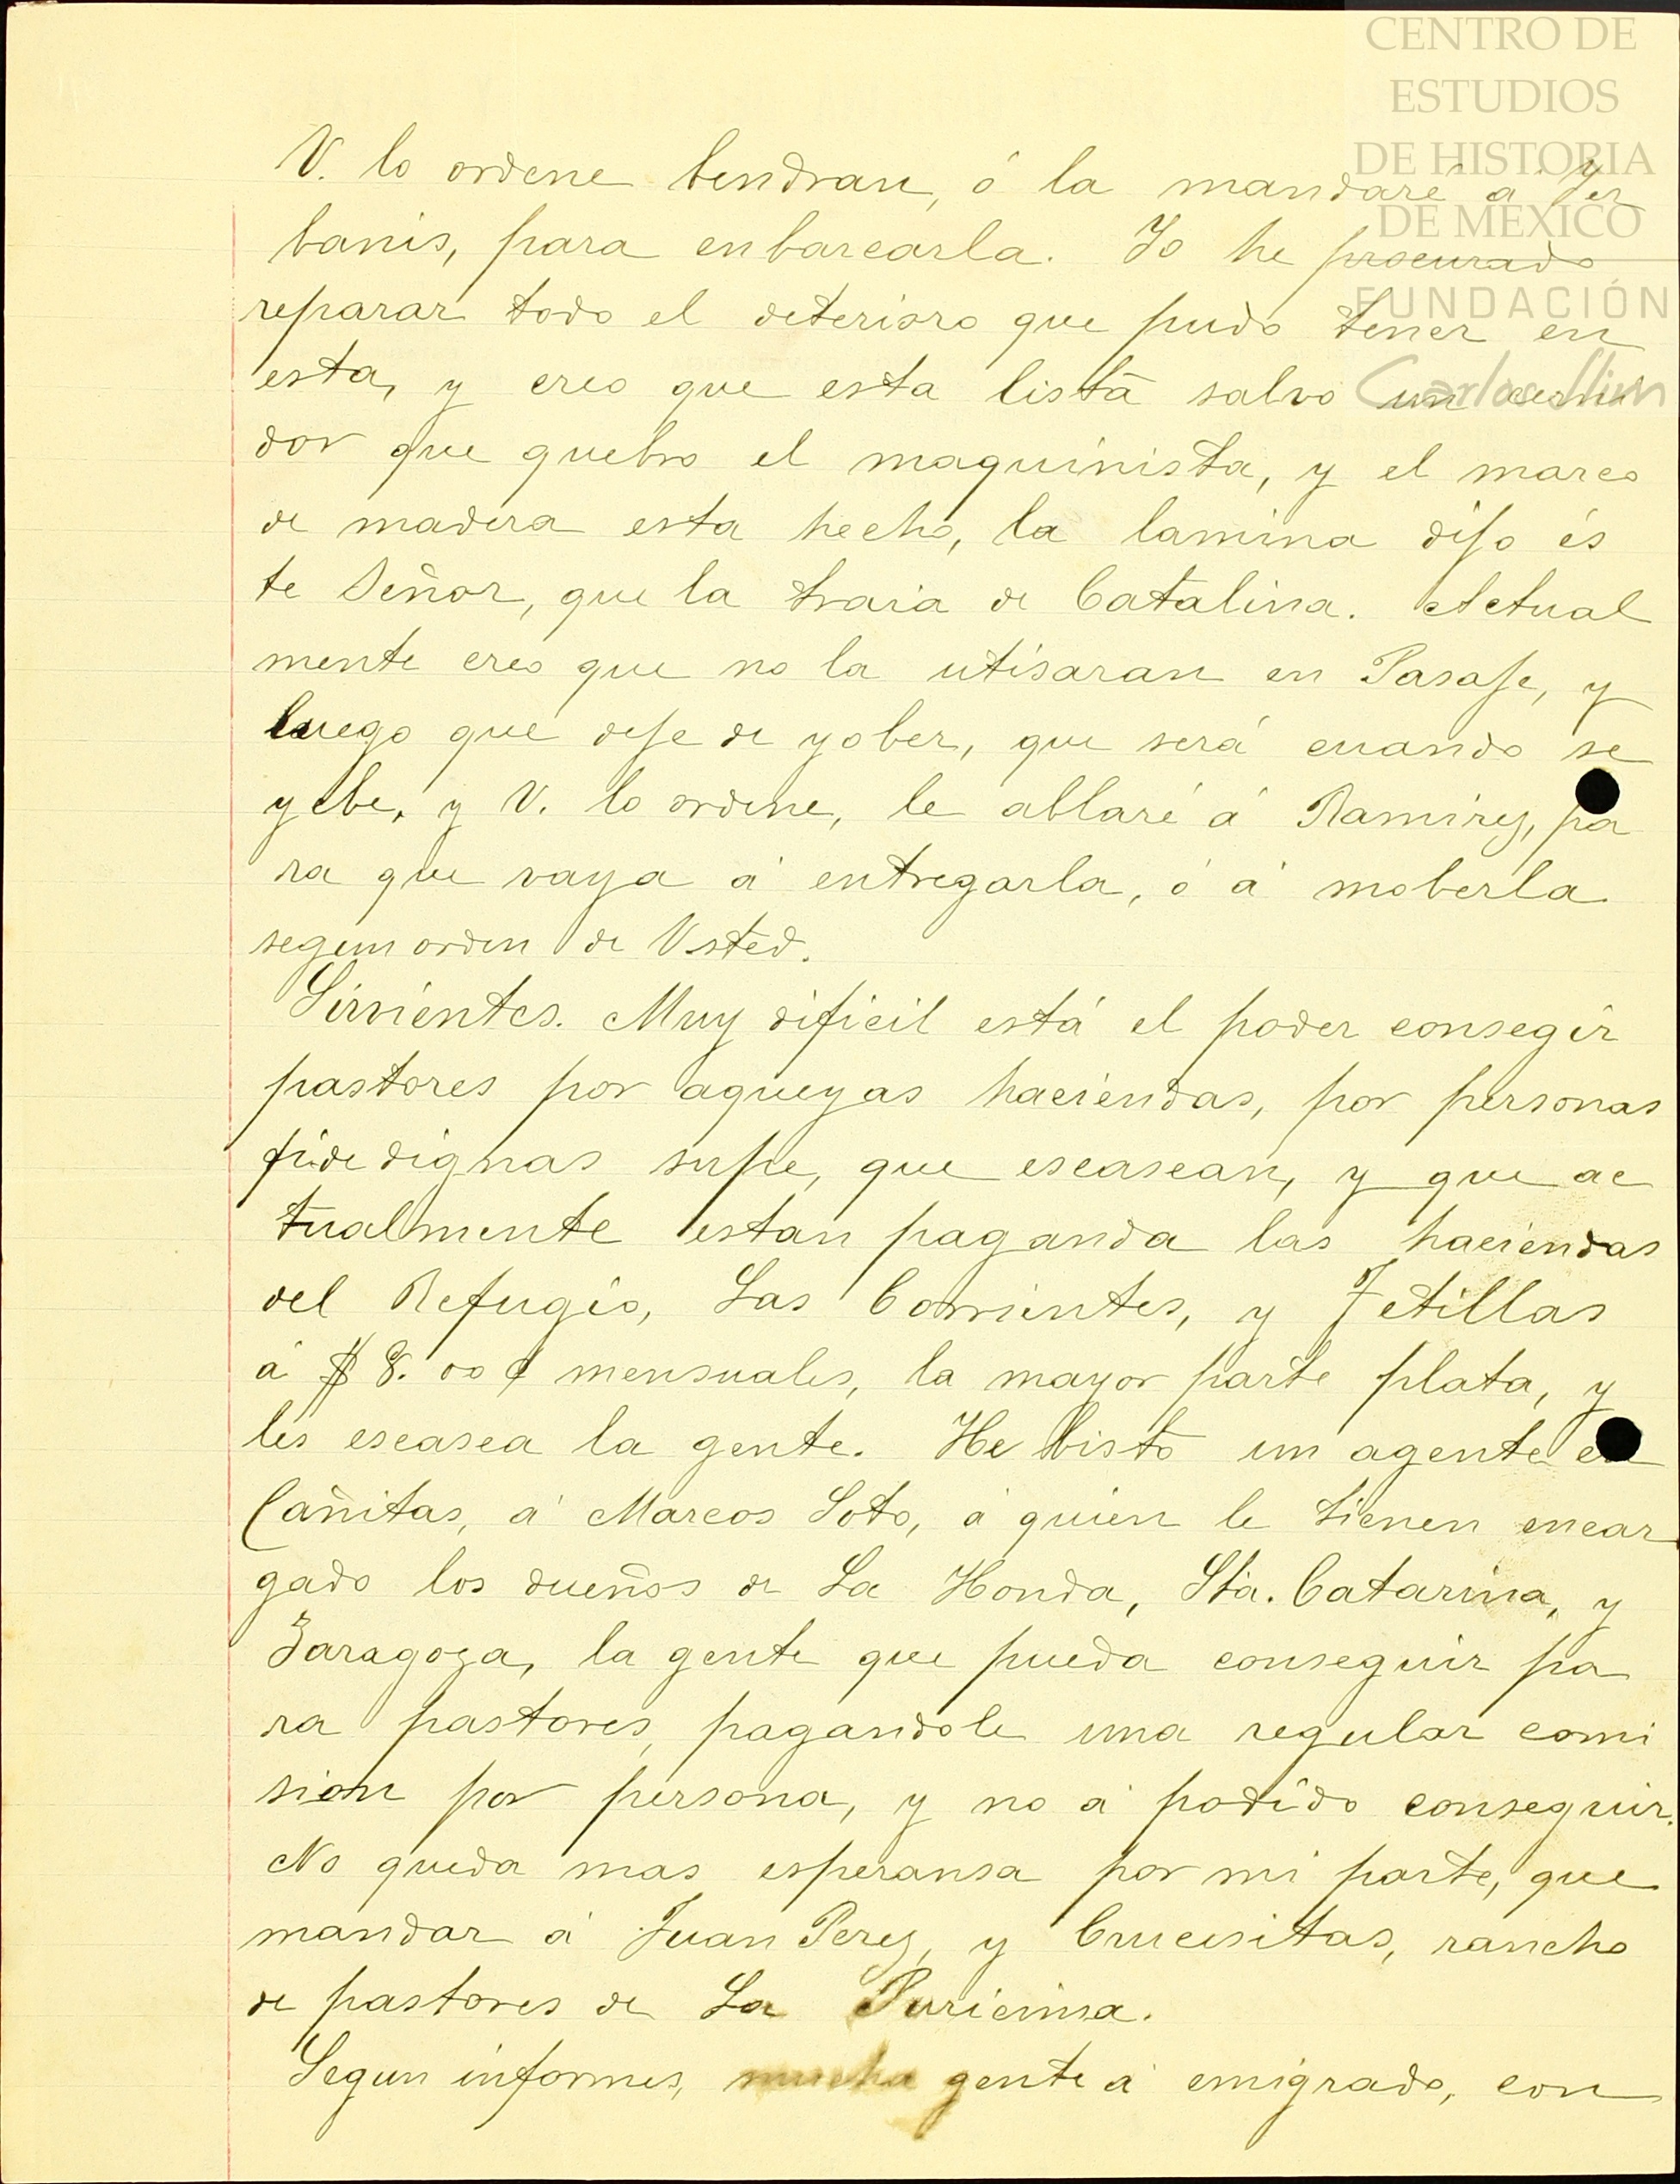 CENTRO DE
ESTUDIOS
DE HISTORIA
DE MEXICO
FUNDACIÓN
Carlos Slim
V. lo ordene bendran, ó la mandaré á Yer
banis, para enbarcarla. Yo he procurado
reparar todo el deterioro que pudo tener en
esta, y creo que esta listā salvo un cerni
dor que quebro el maquinista, y el marco
de madera esta hecho, la lamina dijo és
te Señor, que la traia de Catalina. Actual
mente creo que no la utisaran en Pasaje, y
luego que deje de yober, que será cuando se
yebe, y V. lo ordene, le ablaré á Ramirez, pa
ra que vaya á entregarla, ó á moberla
segun orden de Usted.
Sirvientes. Muy dificil está el poder consegir
pastores por aqueyas haciendas, por personas
fidedignas supe, que escasean, y que ac
tualmente estan paganda las haciendas
del Refugio, Las Corrientes, y Tetillas
á $8.00¢ mensuales, la mayor parte plata, y
les escasea la gente. He bisto un agente en
Cañitas, á Marcos Soto, á quien le tienen encar
gado los dueños de La Honda, Sta. Catarina, y
Zaragoza, la gente que pueda conseguir pa
ra pastores, pagandole una regular comi
sion por persona, y no á podido conseguir.
No queda mas esperansa por mi parte, que
mandar á Juan Perez, y Crucesitas, rancho
de pastores de La Puricima.
Segun informes, mucha gente á emigrado, con